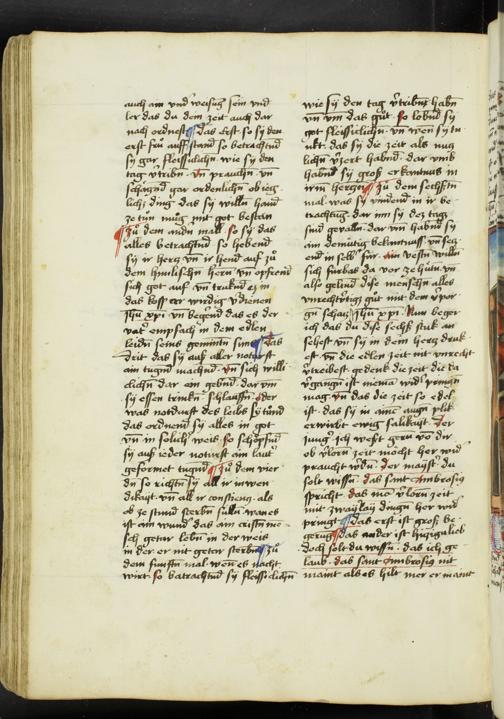 auch am und weisug sein und
ler das du dem zeit auch dar
nach ordnest das Erst so sy den
erst frü auff stand so betrachtnd
sy gar fleissiclichn wie sy den
tag vtribn vn prauchn vn
schöznd gar ordenlichn ob ieg
lich ding das sy willn hand
ze tun mug mit got bestan
zu dem andn mall so sy das
alles betrachtnd so hebend
sy ir herz vn ir hend auf zu
dem himlischn hern vn opfrend
sich got auf vn
das kost wirdig
ihu xpi vn begerd das es der
vatr empfach in dem edlen
leidn seins geminttn suns das
Drit das sy auß aller noturft
ain tugnd machnd vn sich willi
clichn dar ein gebnd dar vm
sy essen trinkn schlauffn oder
was notdurft des leibs sy tund
das ordnend sy alles in got
vn in solich weis so schöpfnd
sy auß ieder noturft ain laut
geformet tugnd zu dem vier
dn so richtn sy all ir inwen
dikait vn all ir consienz als
ob ze stund sterbn sulln wan es
ist ain wund das ain cristn me
sch getar lebn in der weis
in der er nit getar sterbn zu
dem funftn mal wen es nacht
wirt so batrachtnd sy fleissiclichn
wie sy den tag vtribn habn
vn vm das gut so lobnd sy
got fleissiclichn vn wen sy tu
nkt das sy die zeit als nuz
lichn vzert habnd dar vmb
habnd sy groß erkantnus in
irm herzen zu dem sechstn
mal was sy vindend in ir be
trachtug dar inn sy dez tag
sind gevalln dar vm habnd sy
ain demutig bekantnuss
end in selb für ain vestn willn
sich fürbas da vor ze hutn vn
also gelind dise menschn alles
vnrechtvtigs gut mit dem
ihu xpi Nun beger
ich das du dise sechs stuk an
sehest vn sy in dein herz druk
est vn die edlen zeit mit unrecht
vtreibest gedenk die zeit die da
vgangn ist niema wid pringn
mag vn das die zeit so edel
ist das sy in aine augn plik
erwirbt ewig salikait Der
jung ich west gern vo dir
ob vlorn zeit möcht her wid
praucht wdn der mayst du
solt wissn das sant Ambrosius
spricht das me vlorn zeit
mit zwaylay dingn her wid
pringt das erst ist groß be
gerug das ander ist hiziguclich
Doch solt du wissn das ich ge
laub das sant Ambrosius nit
maint als es hilt mer er maint